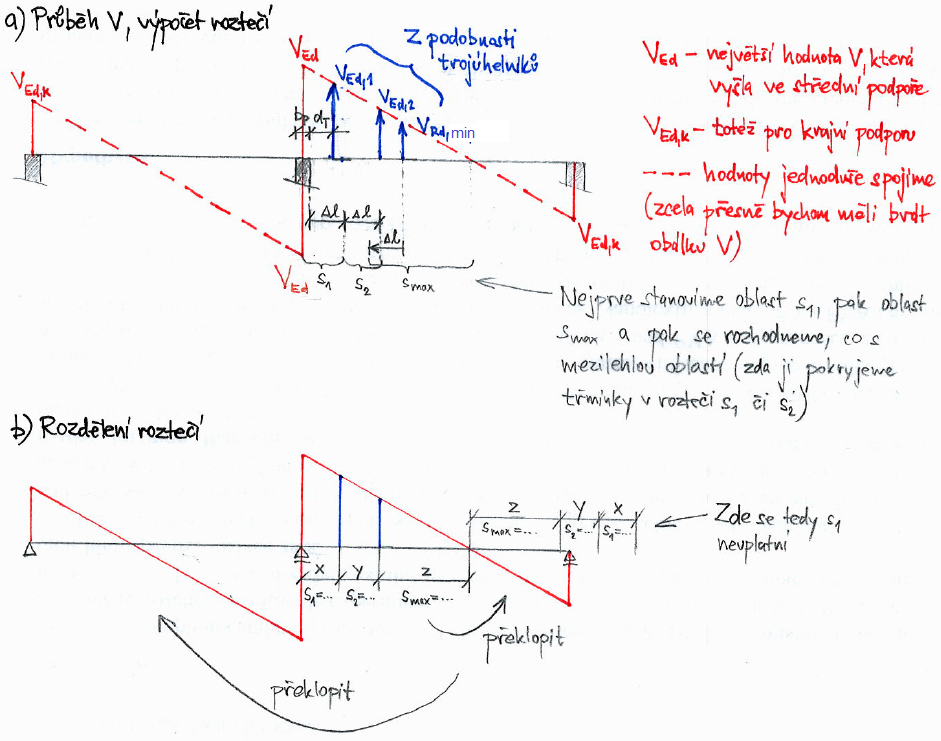 a) Průběh V, výpočet roztečí
Z podobnosti
trojúhelníků
V_Ed
V_Ed,1
V_Ed,2
V_Rd,min
V_Ed,k
b_p d_T
Δl Δl
Δl
S_1 S_2 S_max
V_Ed
V_Ed,k
V_Ed - největší hodnota V, která
vyšla ve střední podpoře
V_Ed,k - totéž pro krajní podporu
--- hodnoty jednoduše spojíme
(zcela přesně bychom měli brát
obálku V)
Nejprve stanovíme oblast s_1, pak oblast
s_max a pak se rozhodneme, co s
mezilehlou oblastí (zda ji pokryjeme
třmínky v rozteči s_1 či s_2)
b) Rozdělení roztečí
z y x
s_max=... s_2=... s_1=...
Zde se tedy s_1
neuplatní
x y z
s_1=... s_2=... s_max=...
překlopit
překlopit